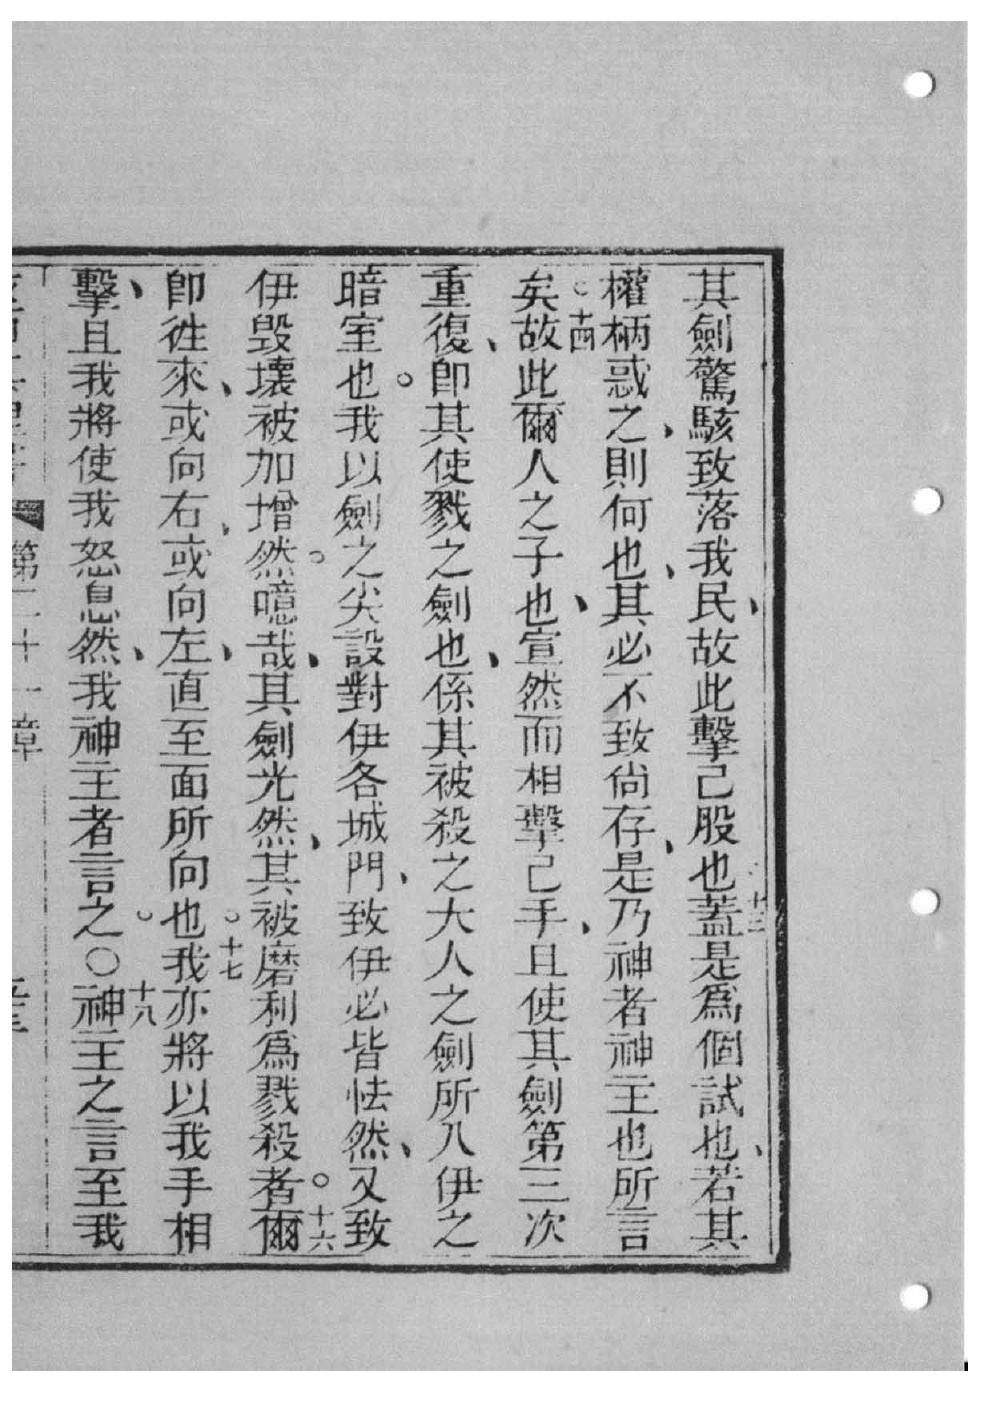 其劍驚駭致落我民、故此擊己股也十三蓋是爲個試也、若其
權柄惑之、則何也、其必不致尙存、是乃神者神主也所言
矣。十四故此爾人之子也、宣然而相擊己手、且使其劍第三次
重復、卽其使戮之劍也、係其被殺之大人之劍所入伊之
暗室也。我以劍之尖設對伊各城門、致伊必皆怯然、又致
伊毀壞被加增然。噫哉、其劍光然、其被磨利爲戮殺者。十六爾
卽徃來、或向右、或向左、直至面所向也。十七我亦將以我手相
擊、且我將使我怒息然、我神主者言之。〇十八神主之言至我
第二十一章